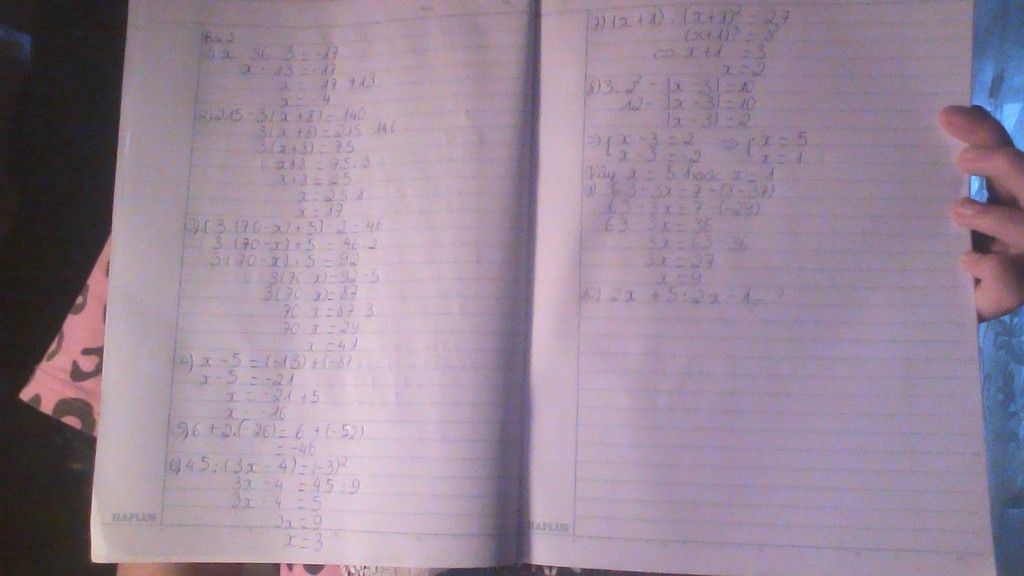 Bài 2
x - 36 : 3 = -17
x - 13 = -17
x = -17 + 13
x = -4
2) 215 - 3(x+8) = 140
3(x+8) = 215 - 140
3(x+8) = 75
x+8 = 75:3
x+8 = 25
x = 25-8
x = 17
3) [3.(70-x)+5] : 2 = 46
3.(70-x)+5 = 46.2
3.(70-x)+5 = 92
3(70-x) = 92-5
3(70-x) = 87
70-x = 87:3
70-x = 29
x = 41
4) x - 5 = (-13) + (-8)
x - 5 = -21
x = -21 + 5
x = -16
5) 6 + 2.(-26) = 6 + (-52)
= -46
6) 45 : (3x - 4) = (-3)²
3x - 4 = 45 : 9
3x - 4 = 5
3x = 9
x = 3
HAPLUS
7) (x+1) . (x+1)² = 27
(x+1)³ = 3³
⇔ x+1 = 3
x = 2
8) 3.2² - |x - 3| = 10
12 - |x - 3| = 10
|x - 3| = 2
=> [x - 3 = 2 => [x = 5
x - 3 = -2 x = 1
Vậy x = 5 hoặc x = 1
9) 63 - 3x = 7 - (8 - 37)
63 - 3x = 7 - (-29)
63 - 3x = 36
3x = 63 - 36
3x = 27
x = 9
10) 2x + 5 : 2x - 1 = ?
HAPLUS